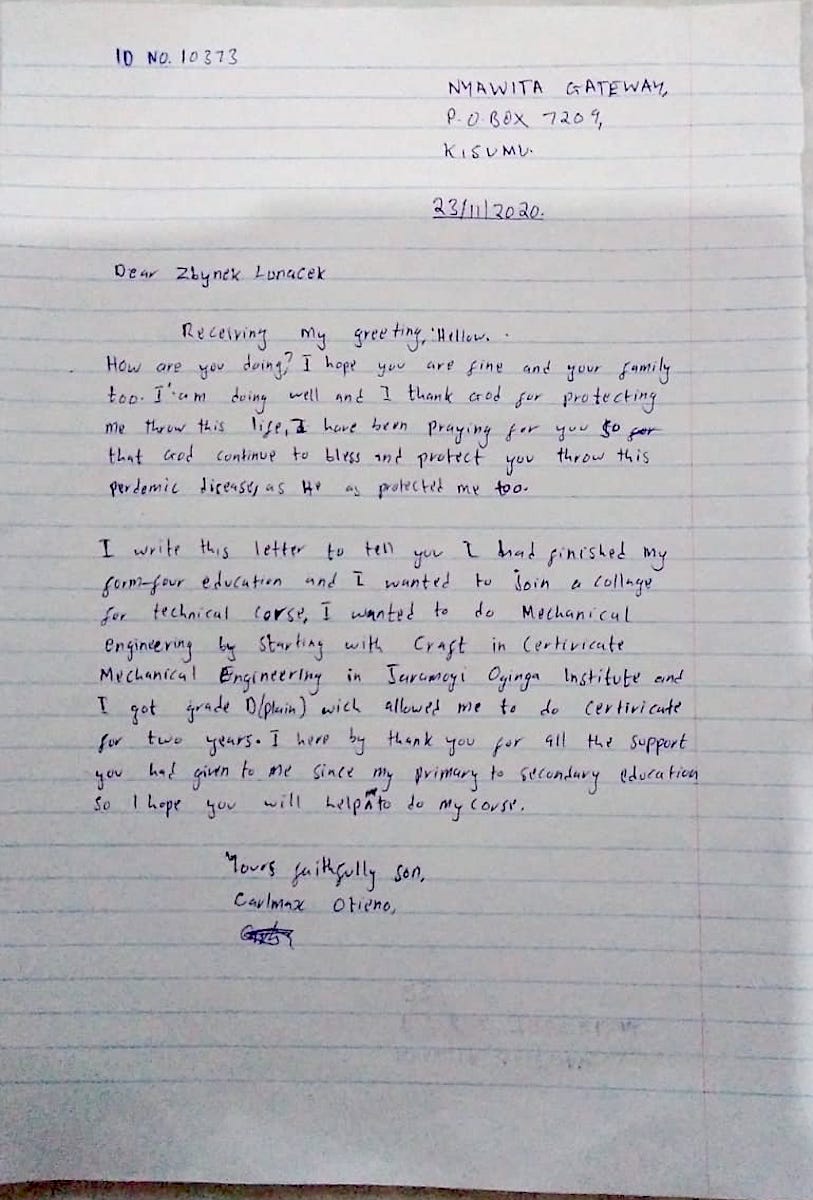 ID NO. 10373
NYAWITA GATEWAY,
P.O.BOX 7209,
KISUMU.
23/11/2020.
Dear Zbynek Lunacek
Receiving my greeting, Hellow.
How are you doing? I hope you are fine and your family
too. I'am doing well and I thank God for protecting
me throw this life, I have been praying for you so for
that God continue to bless and protect you throw this
perdemic disease, as He as protected me too.
I write this letter to tell you I had finished my
form-four education and I wanted to join a collage
for technical corse, I wanted to do Mechanical
engineering by starting with Craft in Certivicate
Mechanical Engineering in Jaramogi Oginga Institute and
I got grade D(plain) wich allowed me to do certivicate
for two years. I here by thank you for all the support
you had given to me since my primary to secondary education
so I hope you will help me to do my corse.
Yours faithfully son,
Carlmax Otieno,